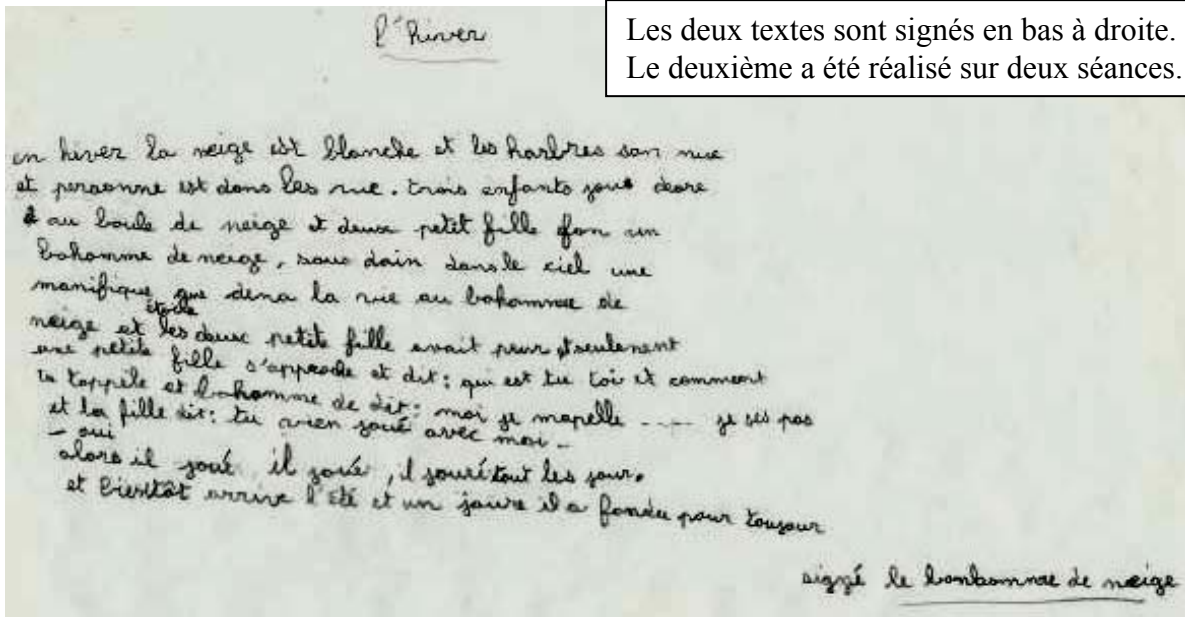 l'hiver
Les deux textes sont signés en bas à droite.
Le deuxième a été réalisé sur deux séances.
en hiver la neige est blanche et les harbres son nue
et personne est dans les rue. trois enfants joue deore
au boule de neige et deux petit fille fon un
bohomme de neige, sous dain dans le ciel une
manifique que dena la vie au bohomme de
étoile
neige et les deux petite fille avait peur, seulement
une petite fille s'approche et dit : qui est tu toi et comment
tu tappèle et bohomme de dit : moi je mapelle ..... je ses pas
et la fille dit : tu vien joué avec moi -
- oui
alors il joué il joué, il joué tout les jour.
et bientôt arrive l'été et un joure il a fondu pour toujour
signé le bonhomme de neige